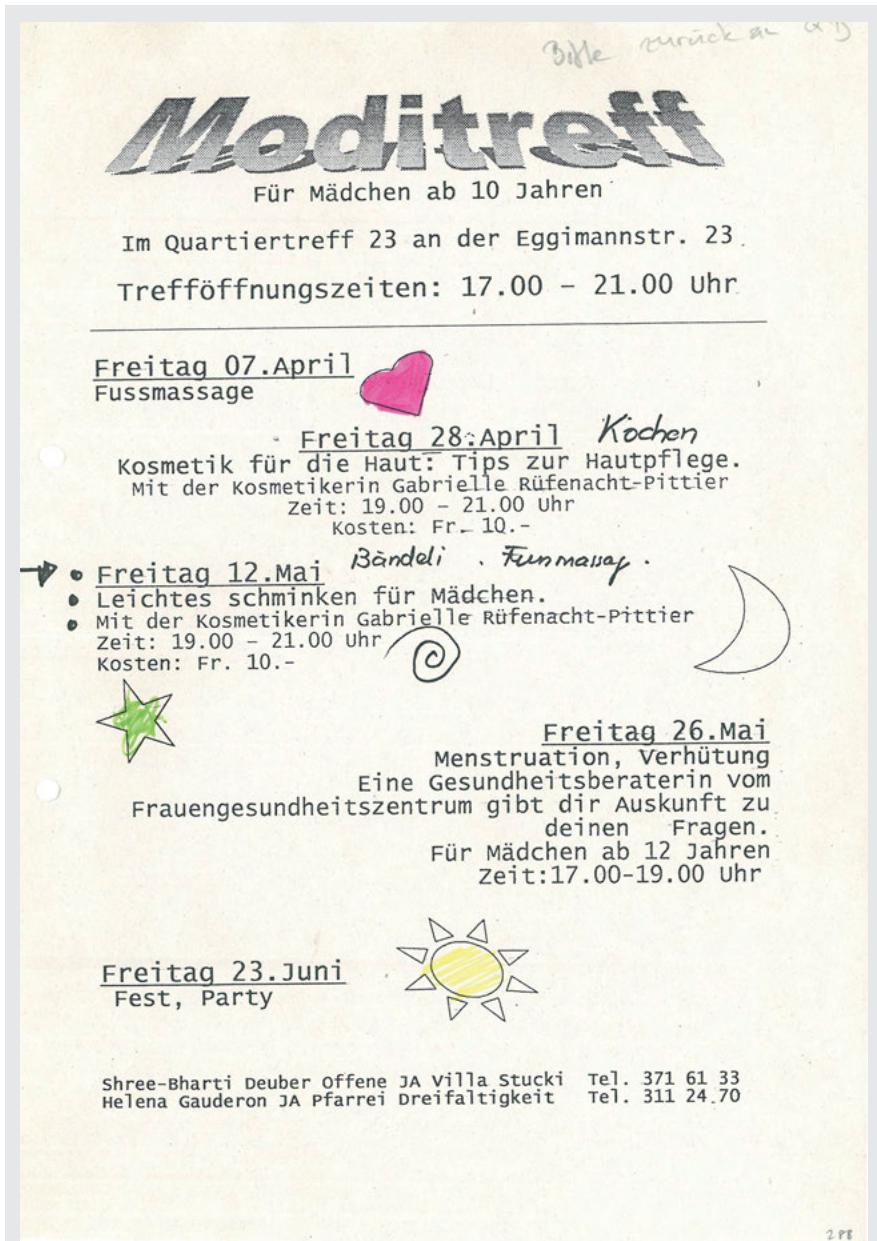 Bitte zurück an
Moditreff
Für Mädchen ab 10 Jahren
Im Quartiertreff 23 an der Eggimannstr. 23
Trefföffnungszeiten: 17.00 – 21.00 Uhr
Freitag 07.April
Fussmassage
Freitag 28.April Kochen
Kosmetik für die Haut: Tips zur Hautpflege.
Mit der Kosmetikerin Gabrielle Rüfenacht-Pittier
Zeit: 19.00 – 21.00 Uhr
Kosten: Fr. 10.-
Freitag 12.Mai Bändeli .
• Leichtes schminken für Mädchen.
• Mit der Kosmetikerin Gabrielle Rüfenacht-Pittier
Zeit: 19.00 – 21.00 Uhr
Kosten: Fr. 10.-
Freitag 26.Mai
Menstruation, Verhütung
Eine Gesundheitsberaterin vom
Frauengesundheitszentrum gibt dir Auskunft zu
deinen Fragen.
Für Mädchen ab 12 Jahren
Zeit:17.00-19.00 Uhr
Freitag 23.Juni
Fest, Party
Shree-Bharti Deuber Offene JA Villa Stucki Tel. 371 61 33
Helena Gauderon JA Pfarrei Dreifaltigkeit Tel. 311 24 70